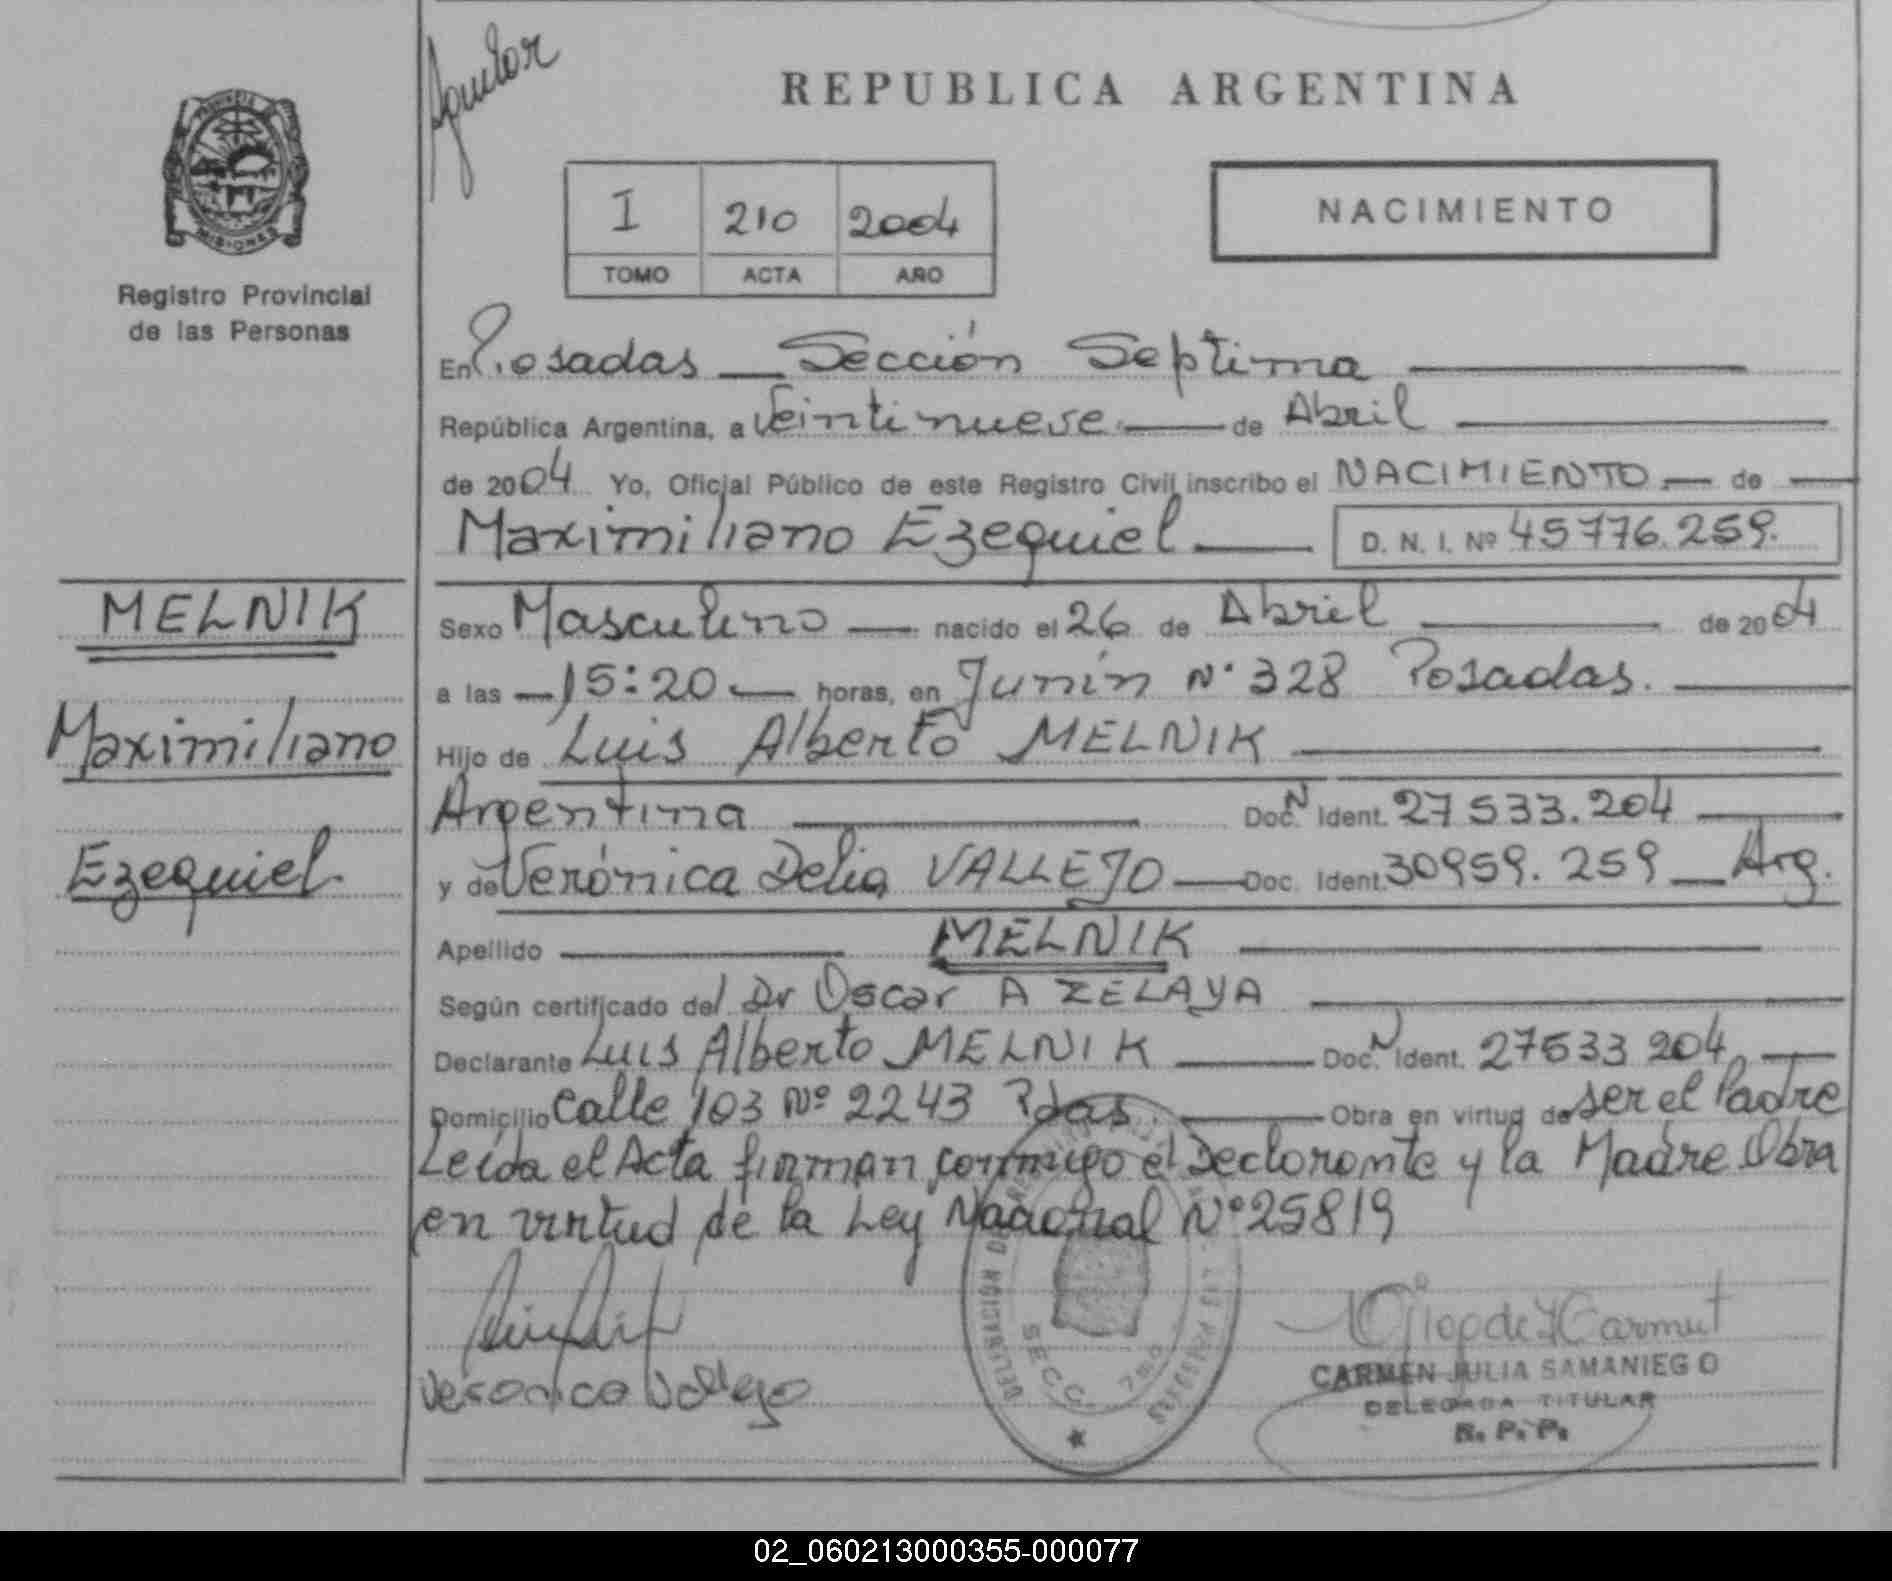 Aguilar
REPUBLICA ARGENTINA
PROVINCIA
MISIONES
Registro Provincial
de las Personas
I 210 2004
TOMO ACTA AÑO
NACIMIENTO
En Posadas Sección Septima
República Argentina, a Veintinueve de Abril
de 2004 Yo, Oficial Público de este Registro Civil inscribo el NACIMIENTO de
Maximiliano Ezequiel D. N. I. Nº 45776.259.
MELNIK
Maximiliano
Ezequiel
Sexo Masculino nacido el 26 de Abril de 2004
a las 15:20 horas, en Junín Nº 328 Posadas.
Hijo de Luis Alberto MELNIK
Argentina Doc. N Ident. 27533.204
y de Verónica Delia VALLEJO Doc. Ident. 30959.259 Arg.
Apellido MELNIK
Según certificado del Dr Oscar A ZELAYA
Declarante Luis Alberto MELNIK Doc. N Ident. 27533 204
Domicilio Calle 103 Nº 2243 Pdas. Obra en virtud de ser el Padre
Leída el Acta firman conmigo el Declarante y la Madre Obra
en virtud de la Ley Nacional Nº 25819
Veronica Vallejo
SECC. 7MA
CARMEN JULIA SAMANIEGO
DELEGADA TITULAR
R. P. P.
02_060213000355-000077